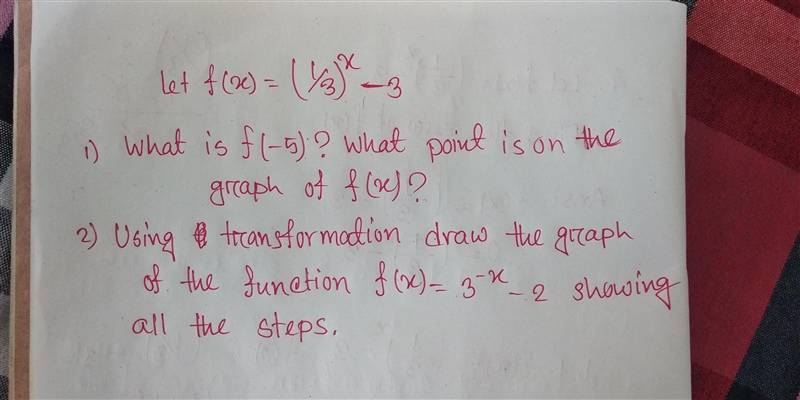 let f(x) = (1/3)^x - 3
1) What is f(-5)? What point is on the
graph of f(x)?
2) Using transformation draw the graph
of the function f(x) = 3^-x - 2 showing
all the steps.